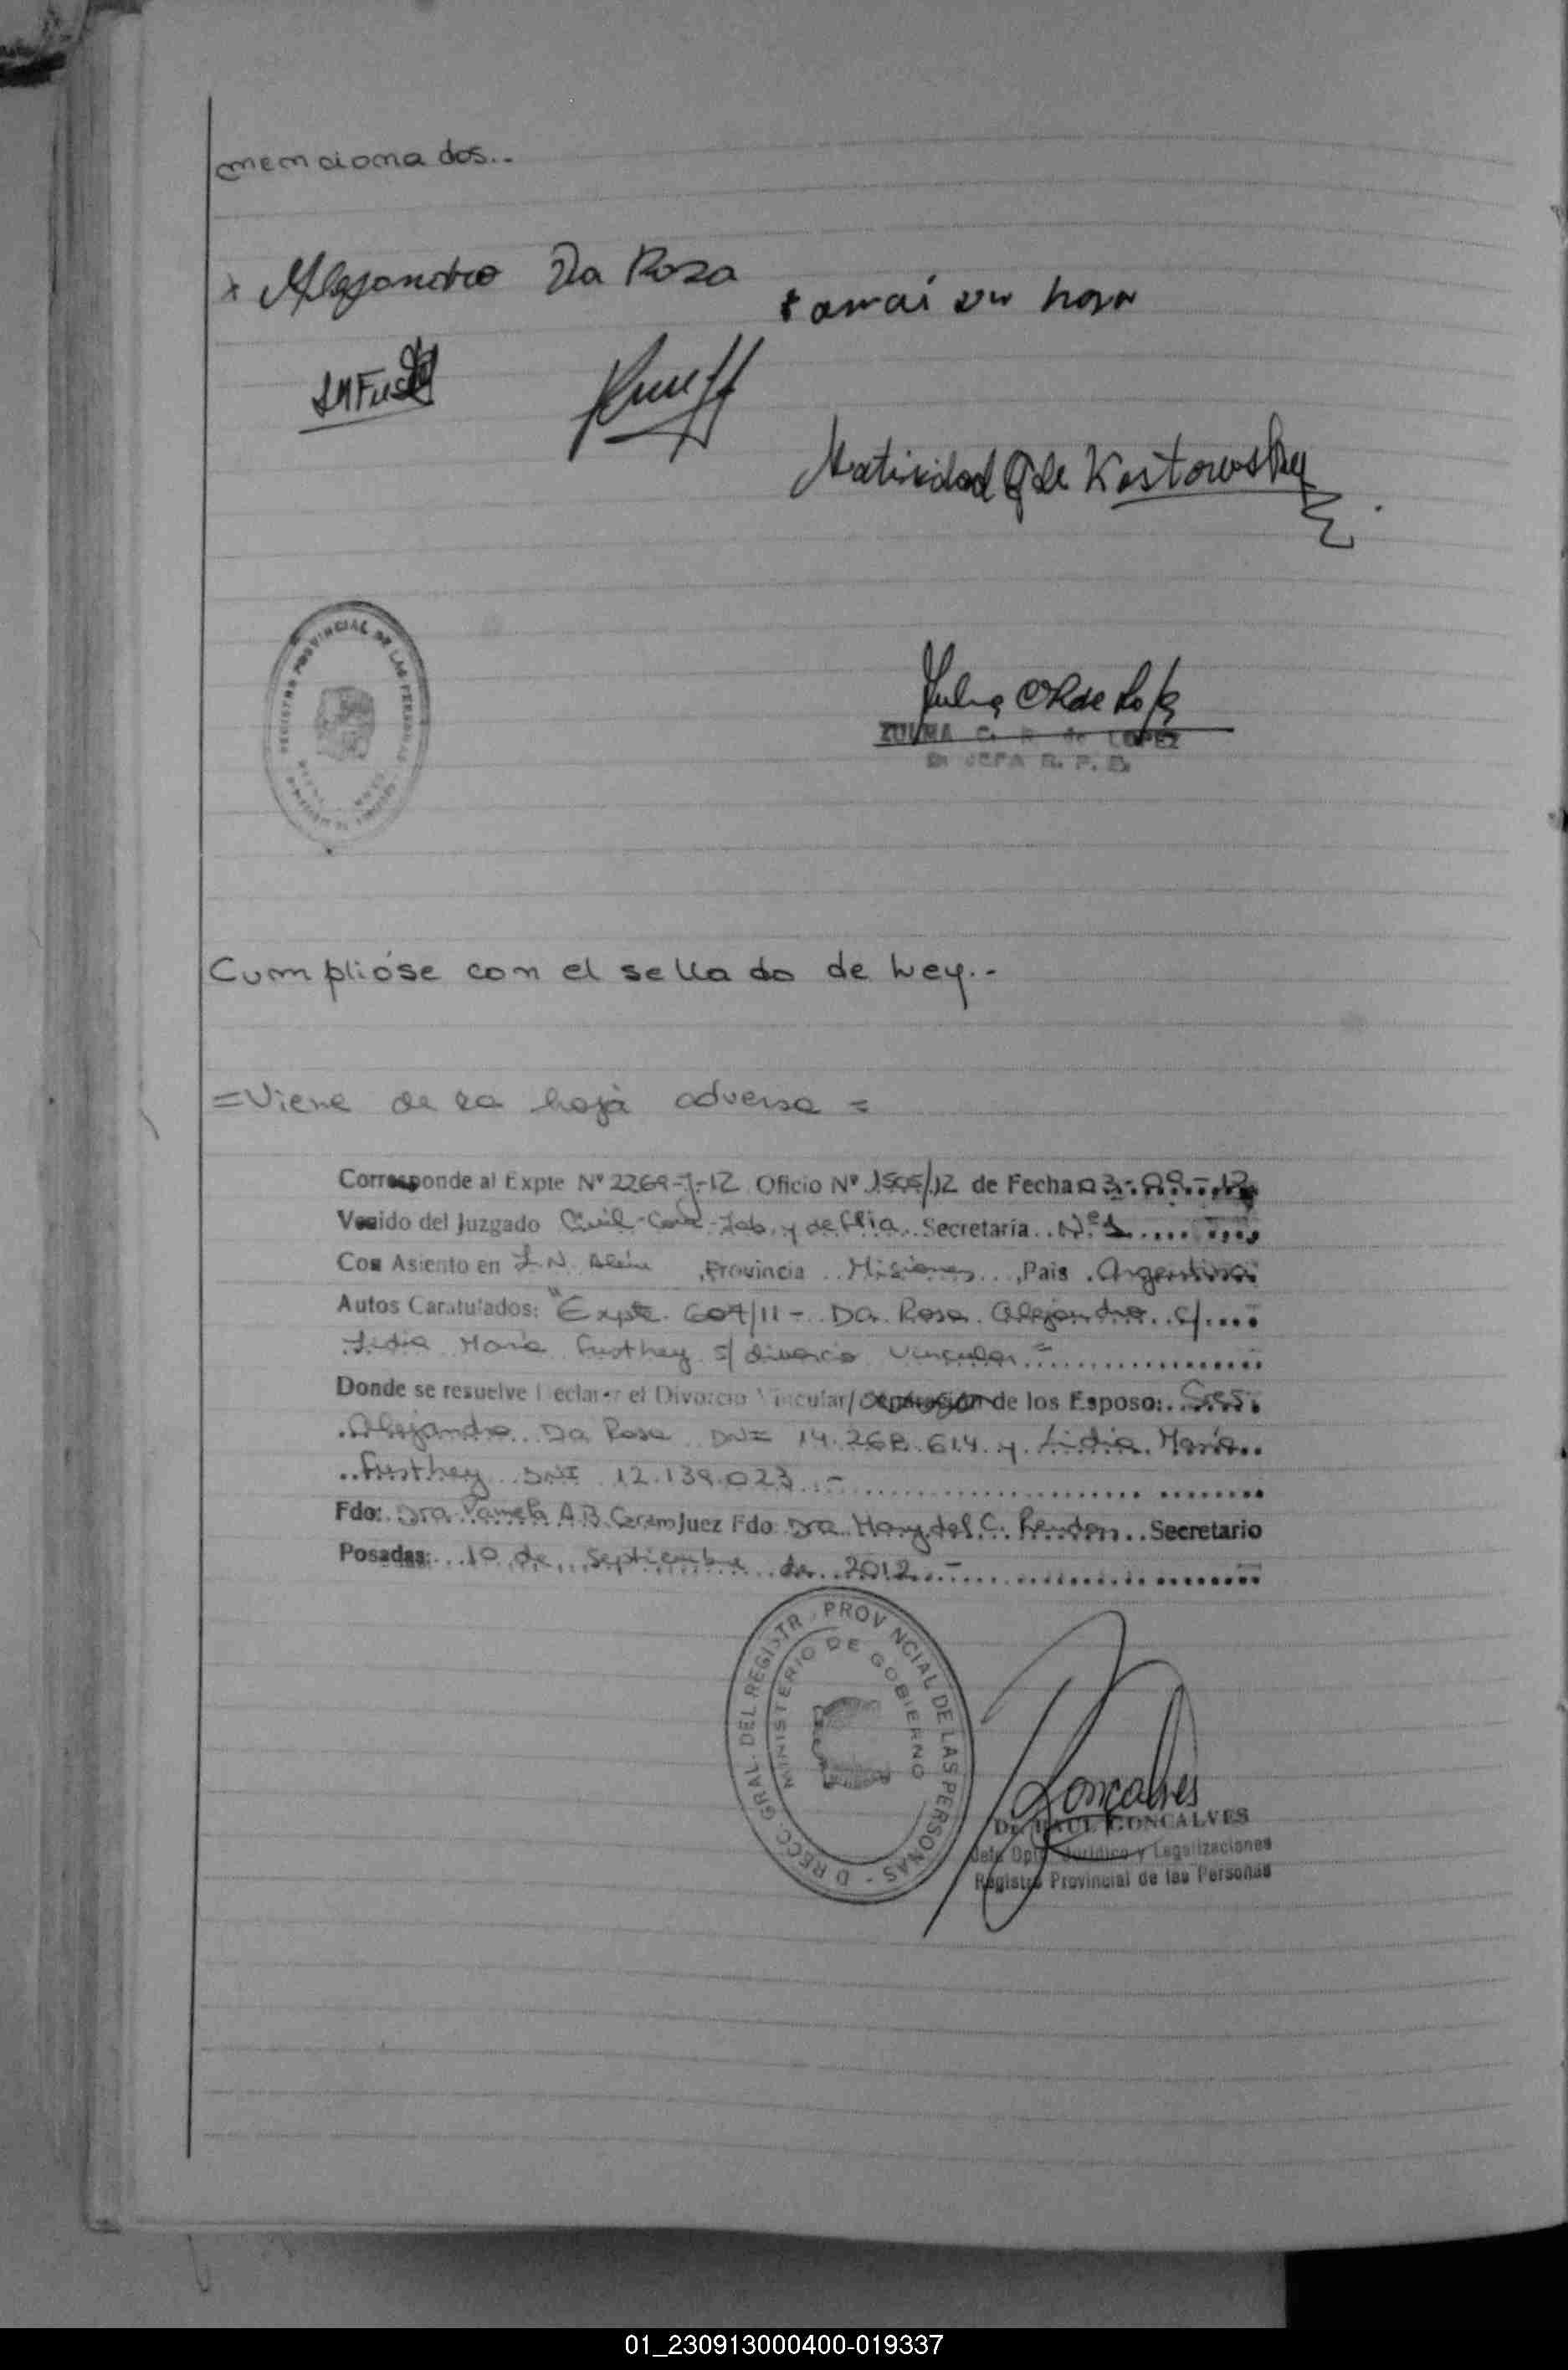 mencionados..-
x Alejandro Da Rosa
LMFusth
Natividad Q de Kostowsky
REGISTRO PROVINCIAL DE LAS PERSONAS
ZULMA C. R. de LOPEZ
JEFA R. P. P.
Cumplióse con el sellado de Ley.-
=Viene de la hoja adversa =
Corresponde al Expte Nº 2269-J-12 Oficio Nº 1505/12 de Fecha 03-09-12
Venido del Juzgado Civil-Com-Lab. y de Flia. Secretaría Nº1
Con Asiento en L.N. Alem, Provincia Misiones, Pais Argentina
Autos Caratulados: "Expte. 607/11 - Da Rosa Alejandro c/
Lidia María Fusthey s/ divorcio vincular"
Donde se resuelve Declarar el Divorcio Vincular/separación de los Esposo: Sres.
Alejandro Da Rosa DNI 14.268.614 y Lidia María
Fusthey DNI 12.139.023 -
Fdo: Dra Pamela A B Juez Fdo Dra Mary del C. Secretario
Posadas: 10 de septiembre de 2012 -
DIRECC. GRAL. DEL REGISTR. PROVINCIAL DE LAS PERSONAS -
MINISTERIO DE GOBIERNO
Goncalves
Dr. RAUL GONCALVES
Jefe Dpto. Jurídico y Legalizaciones
Registro Provincial de las Personas
01_230913000400-019337